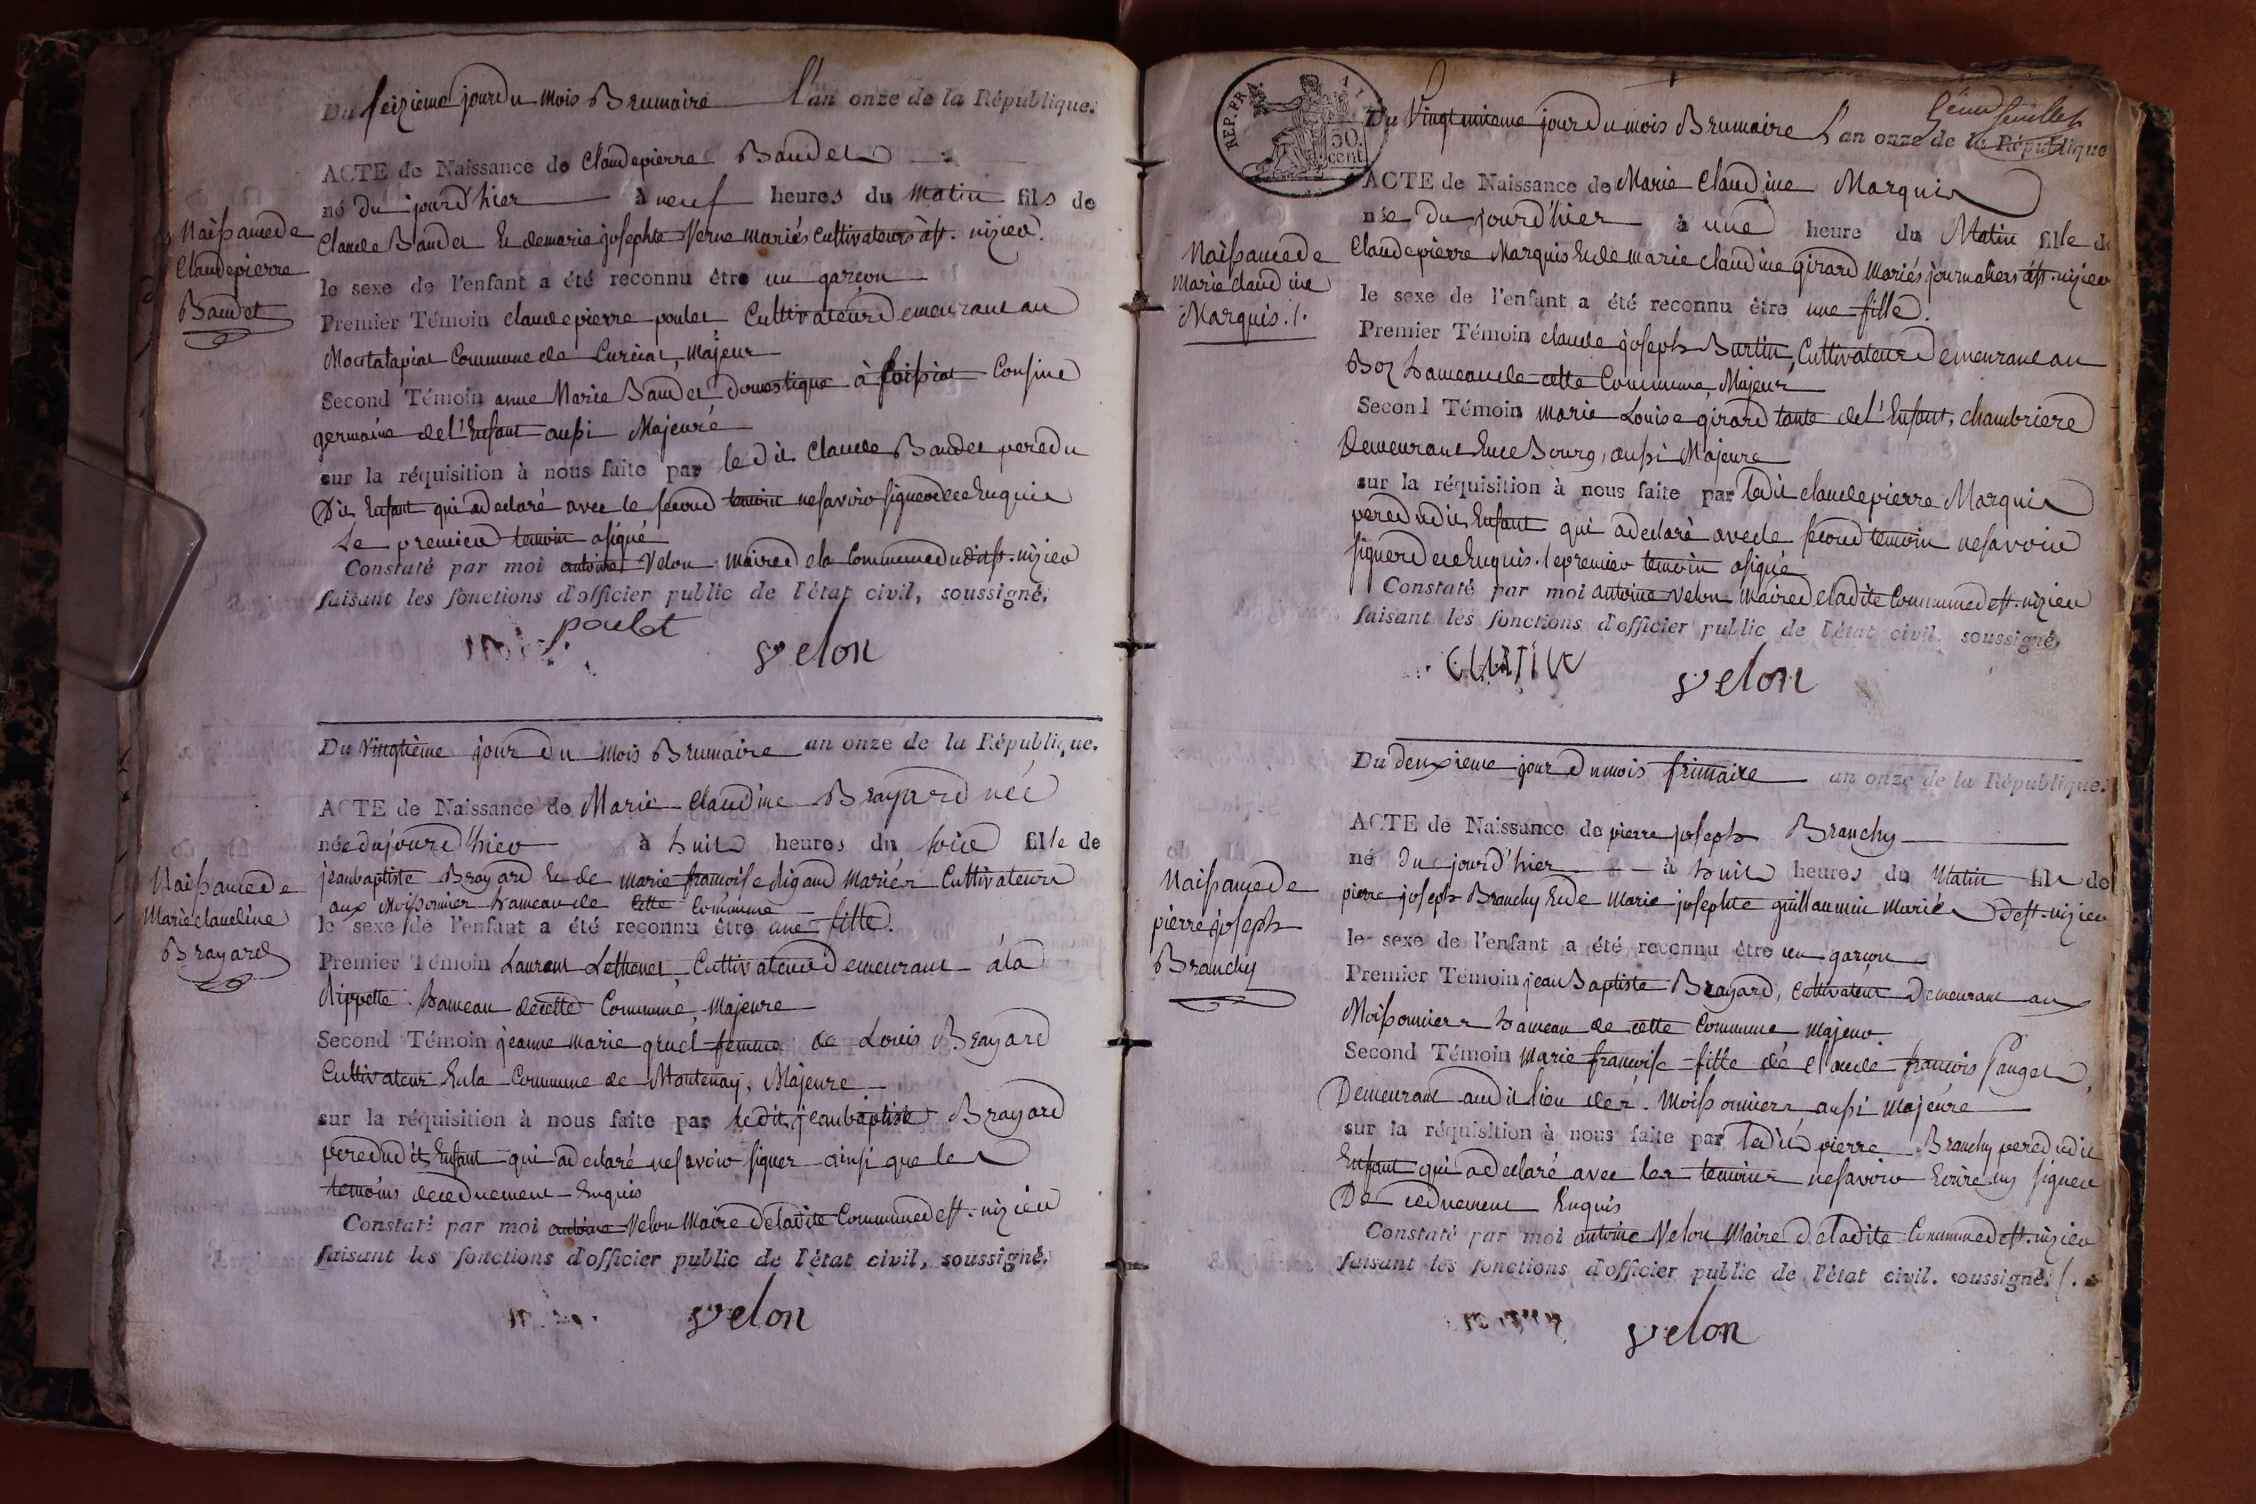 Du seizieme jour du mois Brumaire L'an onze de la République.
ACTE de Naissance de Claude pierre Baudet
né du jourd'hier à neuf heures du matin fils de
Claude Baudet Et de marie josephte Verne mariés Cultivateurs à St. nizier.
le sexe de l'enfant a été reconnu être un garçon
Premier Témoin claude pierre poulet Cultivateur Demeurant au
Montatapiat Commune de Curciat, majeur
Second Témoin anne Marie Baudet domestique à foissiat Cousine
germaine de L'Enfant aussi Majeure
sur la réquisition à nous faite par le Dit Claude Baudet pere du
Dit Enfant qui a declaré avec le second temoin ne savoir signer de ce Enquis
Le premier temoin a signé
Constaté par moi antoine Velon maire de la Commune dudit St. nizier
faisant les fonctions d'officier public de l'état civil, soussigné.
poulet
velon
Naissance de
Claude pierre
Baudet
Du Vingtième jour du mois Brumaire an onze de la République.
ACTE de Naissance de Marie Claudine Brayard née
née dujourd'hier à huit heures du soir fille de
jean baptiste Brayard Et de marie francoise Rigaud mariés Cultivateurs
aux Moissonnier hameau de cette Commune
le sexe de l'enfant a été reconnu être une fille.
Premier Témoin Laurent Lethenet Cultivateur Demeurant à la
Rippette hameau de cette Commune, Majeure
Second Témoin jeanne marie gruel femme de Louis Brayard
Cultivateur En la Commune de Mantenay, Majeure
sur la réquisition à nous faite par ledit jean baptiste Brayard
pere dudit Enfant qui a declaré ne savoir signer ainsi que les
temoins de ce duement Enquis
Constaté par moi antoine Velon Maire de ladite Commune de St. nizier
faisant les fonctions d'officier public de l'état civil, soussigné.
velon
Naissance de
Marie claudine
Brayard
REP. FRA.
50
cent
5eme feuillet
Du Vingt unieme jour du mois Brumaire L'an onze de la République
ACTE de Naissance de Marie Claudine Marquis
née Du jourd'hier à une heure du Matin fille de
Claude pierre Marquis Et de marie claudine girard mariés journaliers à St. nizier
le sexe de l'enfant a été reconnu être une fille.
Premier Témoin claude joseph Burtin, Cultivateur Demeurant au
Boz hameau de cette Commune, Majeur
Second Témoin marie Louise girard tante de L'Enfant, chambriere
Demeurant En ce Bourg, aussi Majeure
sur la réquisition à nous faite par le dit claude pierre Marquis
pere dudit Enfant qui a declaré avec le second temoin ne savoir
signer de ce Enquis. le premier temoin a signé
Constaté par moi antoine velon maire de ladite Commune de St. nizier
faisant les fonctions d'officier public de l'état civil, soussigné.
velon
Naissance de
Marie claudine
Marquis ./.
Du deuxieme jour du mois frimaire an onze de la République.
ACTE de Naissance de pierre joseph Branchy
né du jourd'hier à huit heures du Matin fils de
pierre joseph Branchy Et de Marie josephte guillaumin mariés de St. nizier
le sexe de l'enfant a été reconnu être un garçon
Premier Témoin jean Baptiste Brayard, cultivateur Demeurant aux
Moissonniers hameau de cette Commune majeur.
Second Témoin Marie francoise fille de Claude francois Pauget,
Demeurant audit lieu des Moissonniers aussi majeure
sur la réquisition à nous faite par le dit pierre Branchy pere dudit
Enfant qui a declaré avec les temoins ne savoir Ecrire ny signer
De ce duement Enquis
Constaté par moi antoine Velon Maire de ladite Commune de St. nizier
faisant les fonctions d'officier public de l'état civil. soussigné ./.
velon
Naissance de
pierre joseph
Branchy